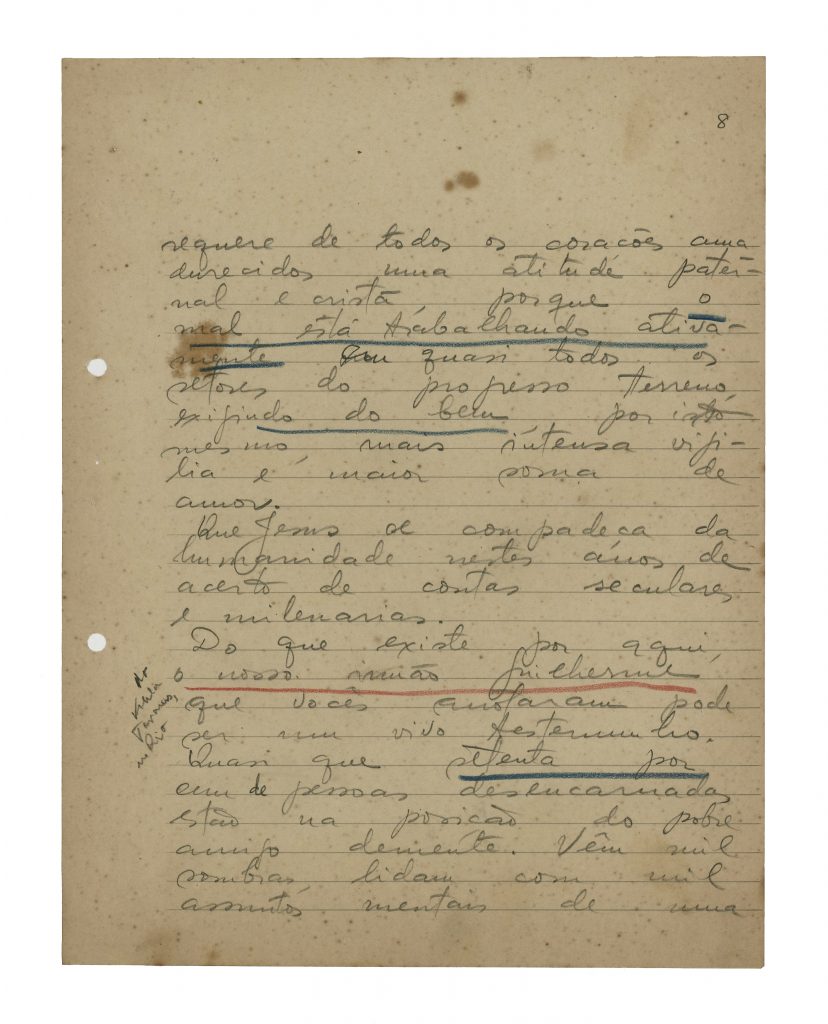 8
requere de todos os corações ama
durecidos uma atitude pater-
nal e cristã, porque o
mal está trabalhando ativa-
mente em quasi todos os
setores do progresso terreno,
exigindo do bem, por isto
mesmo, mais intensa vigi-
lia e maior soma de
amor.
Que Jesus se compadeca da
humanidade nestes ános de
acerto de contas seculares
e milenarias.
Do que existe por aqui,
o nosso irmão Guilherme
que vocês anotaram pode
ser um vivo testemunho.
Quasi que setenta por
cem de pessoas desencarnadas
estão na posicão do pobre
amigo demente. Vêm mil
sombras, lidam com mil
assuntos mentais de uma
do
no Rio